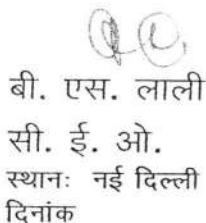 बी. एस. लाली
सी. ई. ओ.
स्थानः नई दिल्ली
दिनांक